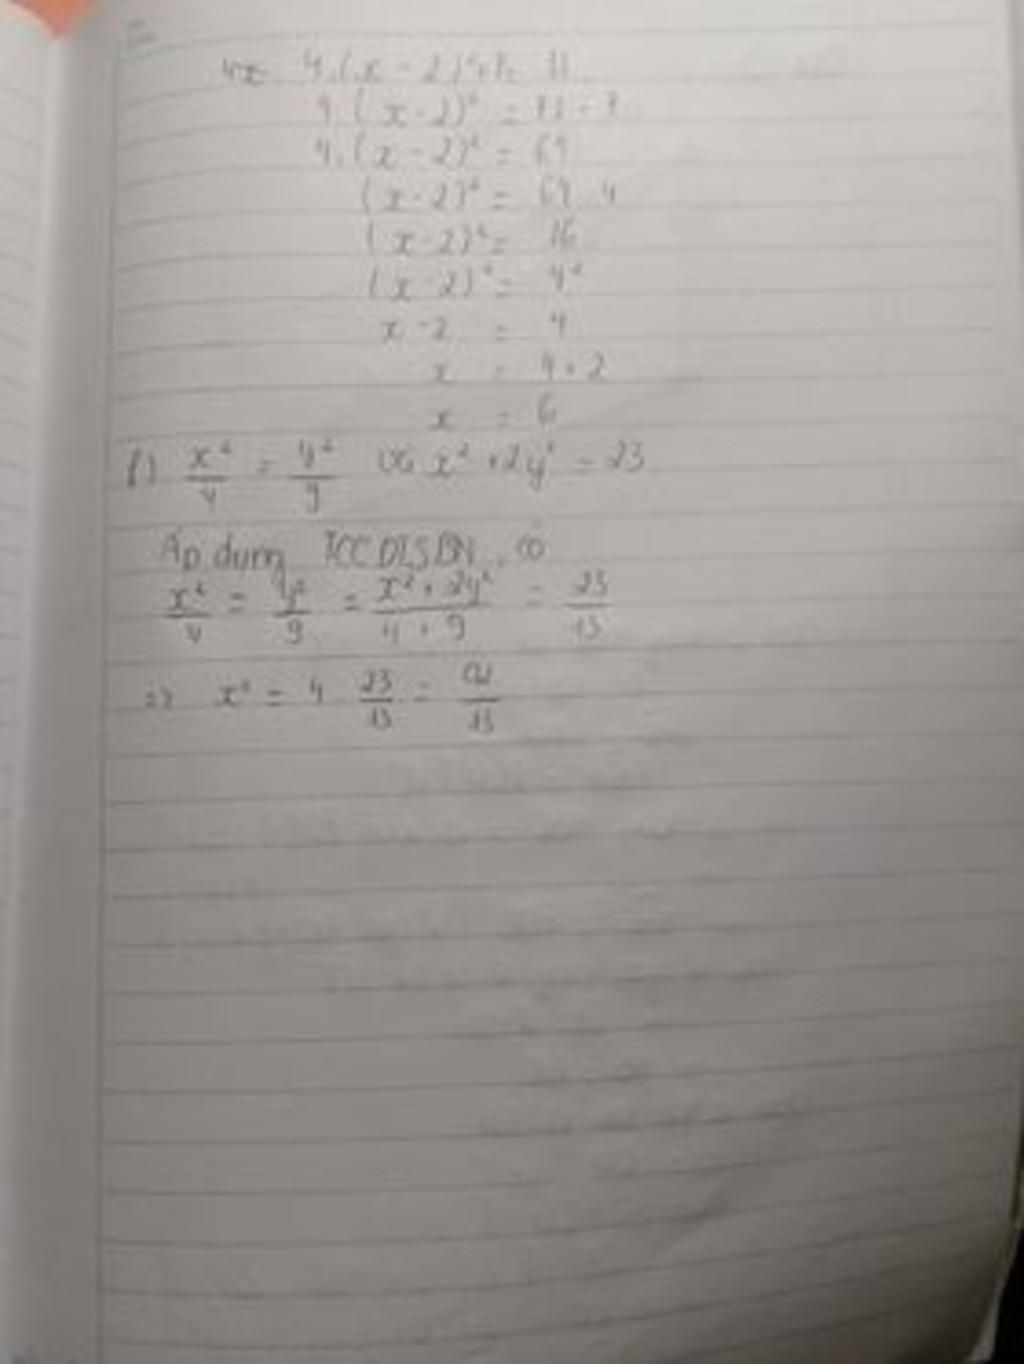 4.(x - 2)²+7= 71
4.(x-2)² = 71-7
4.(x-2)² = 64
(x-2)² = 64 4
(x-2)² = 16
(x-2)² = 4²
x-2 = 4
x = 4+2
x = 6
f) x²/4 = y²/9 và x²+2y² = 23
Áp dụng TCCDTSBN, có
x²/4 = y²/9 = x²+2y²/4+9 = 23/13
=> x² = 4 . 23/13 = 92/13